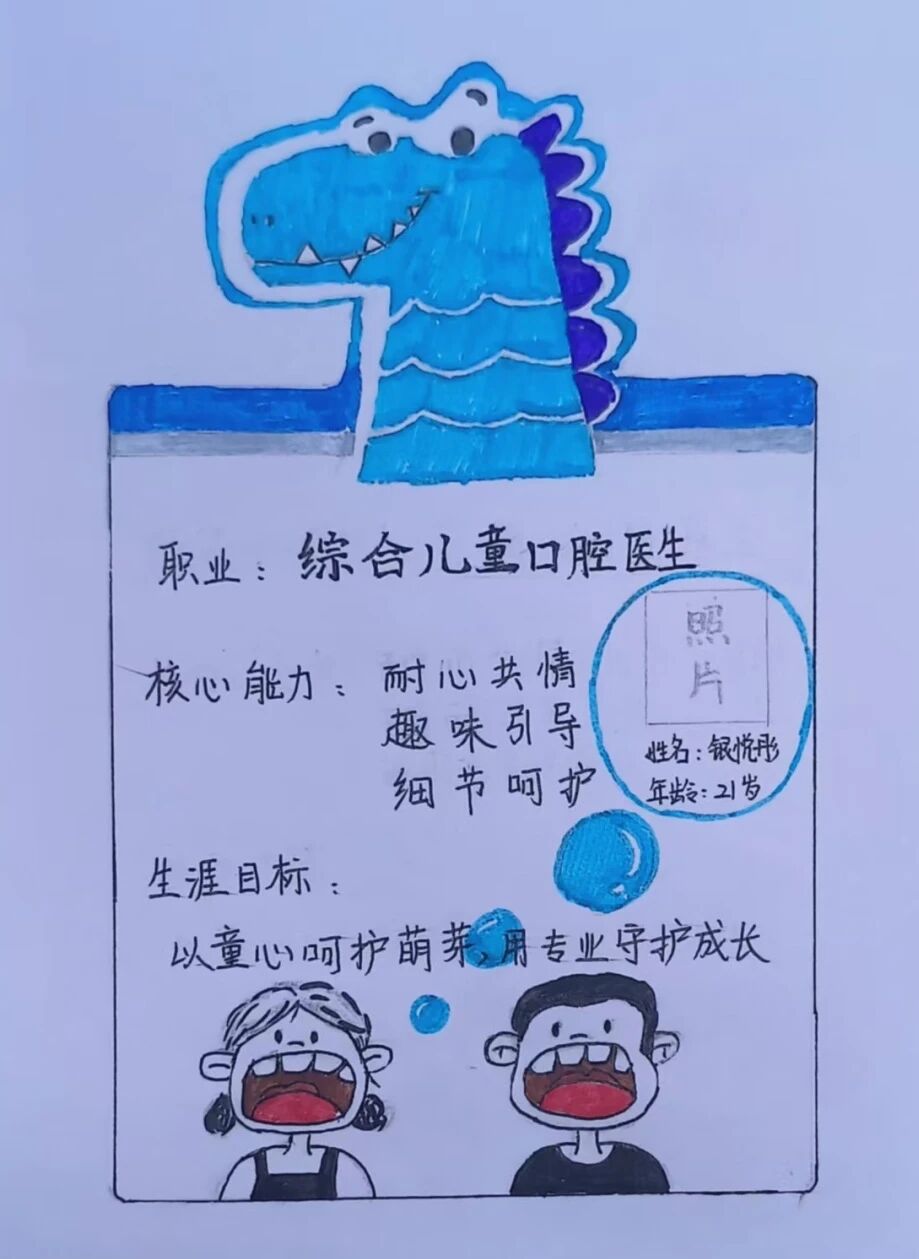 职业：综合儿童口腔医生
照
片
姓名：银悦彤
年龄：21岁
核心能力：耐心共情
趣味引导
细节呵护
生涯目标：
以童心呵护萌芽，用专业守护成长